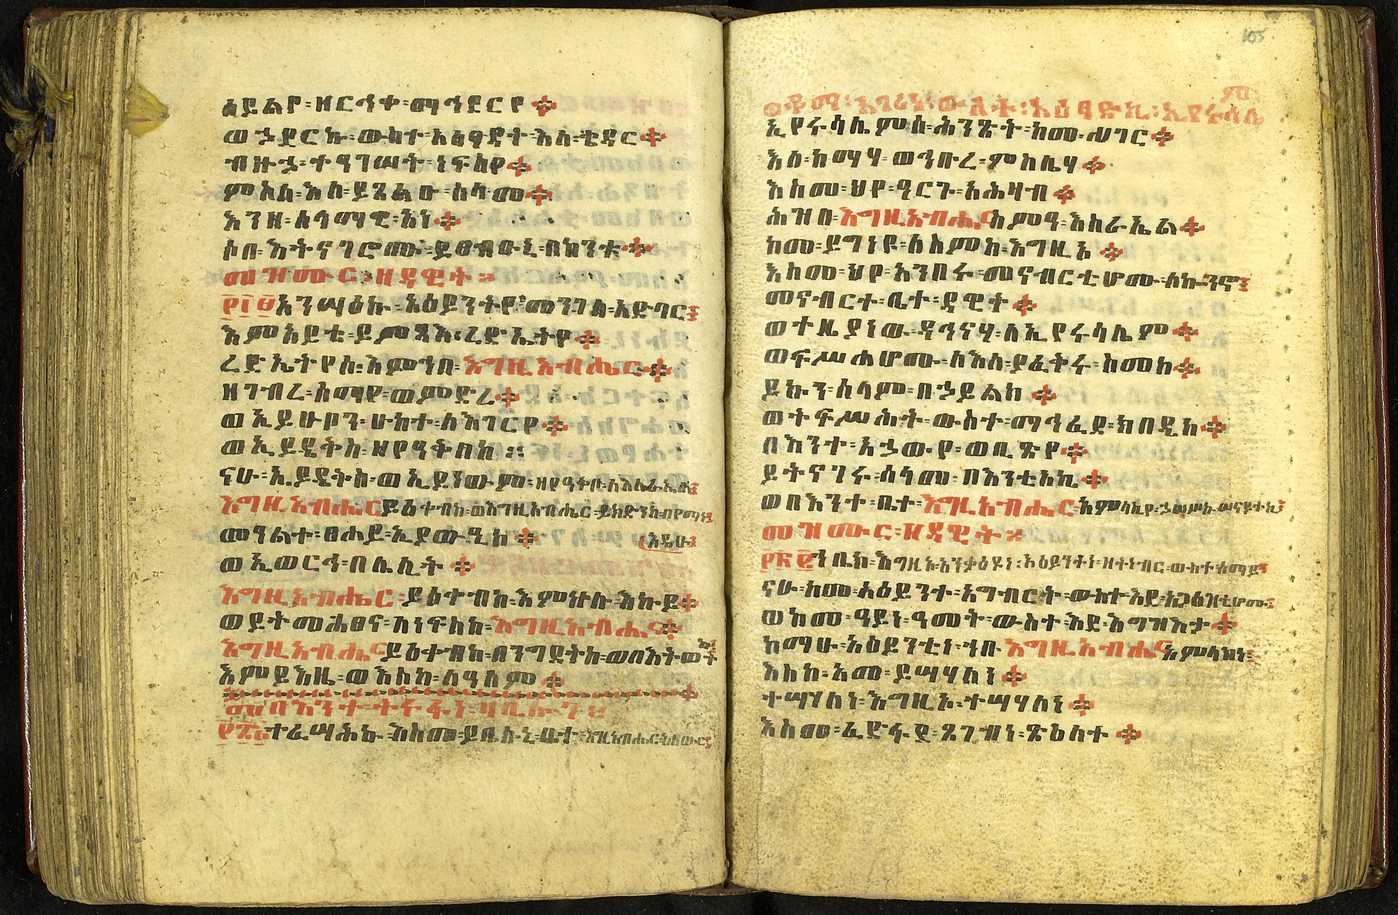 አይልየ፡ዘርኅቀ፡ማኅደርየ
ወኃደርኩ፡ውስተ፡አዕፃዳተ፡እለ፡ቄዳር
ብዙኃ፡ተዓገሠት፡ነፍስየ
ምስለ፡እለ፡ይጸልኡ፡ሰላመ
እንዘ፡ሰላማዊ፡አነ
ሶበ፡እትናገሮሙ፡ይፀብኡኒ፡በከንቱ
መዝሙር፡ዘዳዊት
፻፲፱አንሣዕኩ፡አዕይንትየ፡መንገለ፡አድባር
እምአይቴ፡ይምጻእ፡ረድኤትየ
ረድኤትየሰ፡እምኀበ፡እግዚአብሔር
ዘገብረ፡ሰማየ፡ወምድረ
ወኢይሁቦን፡ሁከተ፡ለእገርየ
ወኢይዴቅስ፡ዘየዓቅበከ
ናሁ፡ኢይዴቅስ፡ወኢይነውም፡ዘየዓቅቦ፡ለእስራኤል
እግዚአብሔር፡ይዕቀብከ፡ወእግዚአብሔር፡ይክድንከ፡በየማነ
እዴሁ
መዓልተ፡ፀሐይ፡ኢያውዒከ
ወኢወርኅ፡በሌሊት
እግዚአብሔር፡ይዕቀብከ፡እምኵሉ፡እኩይ
ወይትመሐፀና፡ለነፍስከ፡እግዚአብሔር
እግዚአብሔር፡ይዕቀብከ፡በንግደትከ፡ወበእትወት
እምይእዜ፡ወእስከ፡ለዓለም
በእንተ
ተፈሣሕኩ፡እስመ፡ይቤሉኒ፡ቤተ፡እግዚአብሔር፡ንሐውር
105
ቆማ፡እገሪነ፡ውስተ፡አዕፃድኪ፡ኢየሩሳሌም
ኢየሩሳሌምሰ፡ሕንጽት፡ከመ፡ሀገር
እለ፡ከማሃ፡ወኅቡረ፡ምስሌሃ
እስመ፡ህየ፡ዓርጉ፡አሕዛብ
ሕዝበ፡እግዚአብሔር፡ስምዓ፡እስራኤል
ከመ፡ይግነዩ፡ለስምከ፡እግዚኦ
እስመ፡ህየ፡አንበሩ፡መናብርቲሆሙ፡ለኰንኖ
መናብርተ፡ቤተ፡ዳዊት
ወተዜያነው፡ዳኅናሃ፡ለኢየሩሳሌም
ወፍሥሐሆሙ፡ለእለ፡ያፈቅሩ፡ስመከ
ይኩን፡ሰላም፡በኃይልከ
ወተፍሥሕት፡ውስተ፡ማኅፈደ፡ክበዲከ
በእንተ፡አኃውየ፡ወቢጽየ
ይትናገሩ፡ሰላመ፡በእንቲአኪ
ወበእንተ፡ቤተ፡እግዚአብሔር፡አምላኪየ፡ኃሠሥኩ፡ሠናይተኪ
መዝሙር፡ዘዳዊት
ኀቤከ፡እግዚኦ፡አንቃዕዶነ፡አዕይንቲነ፡ዘትነብር፡ውስተ፡ሰማይ
ናሁ፡ከመ፡አዕይንተ፡አግብርት፡ውስተ፡እደ፡አጋዕዝቲሆሙ
ወከመ፡ዓይነ፡ዓመት፡ውስተ፡እደ፡እግዝእታ
ከማሁ፡አዕይንቲነ፡ኀበ፡እግዚአብሔር፡አምላክነ
እስከ፡አመ፡ይሣሃለነ
ተሣሃለነ፡እግዚኦ፡ተሣሃለነ
እስመ፡ፈድፋደ፡ጸገብነ፡ጽዕለተ